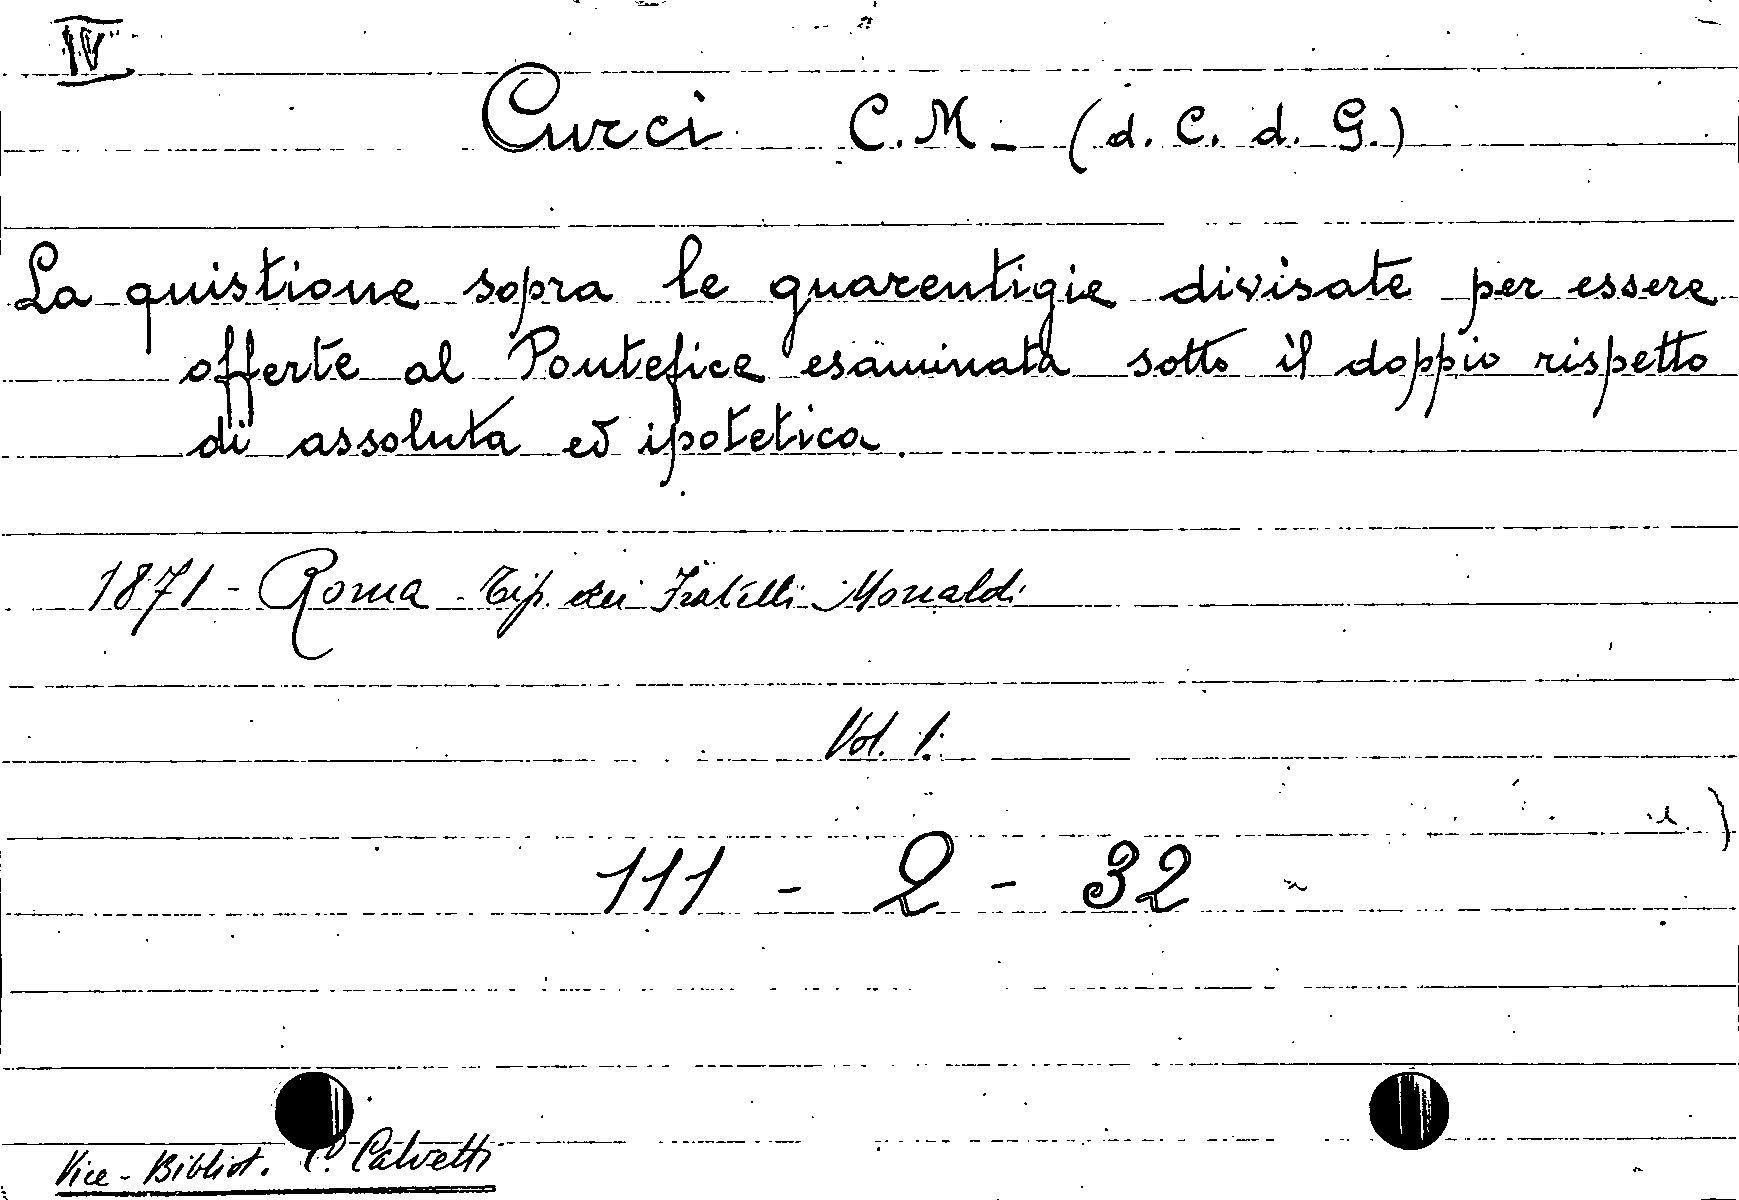 IV
Curci C.M. - (d. C. d. G.)
La quistione sopra le guarentigie divisate per essere
offerte al Pontefice esaminata sotto il doppio rispetto
di assoluta ed ipotetica.
1871 - Roma - Tip. dei Fratelli Monaldi
Vol. 1.
111 - 2 - 32
Vice - Bibliot. P. Calvetti